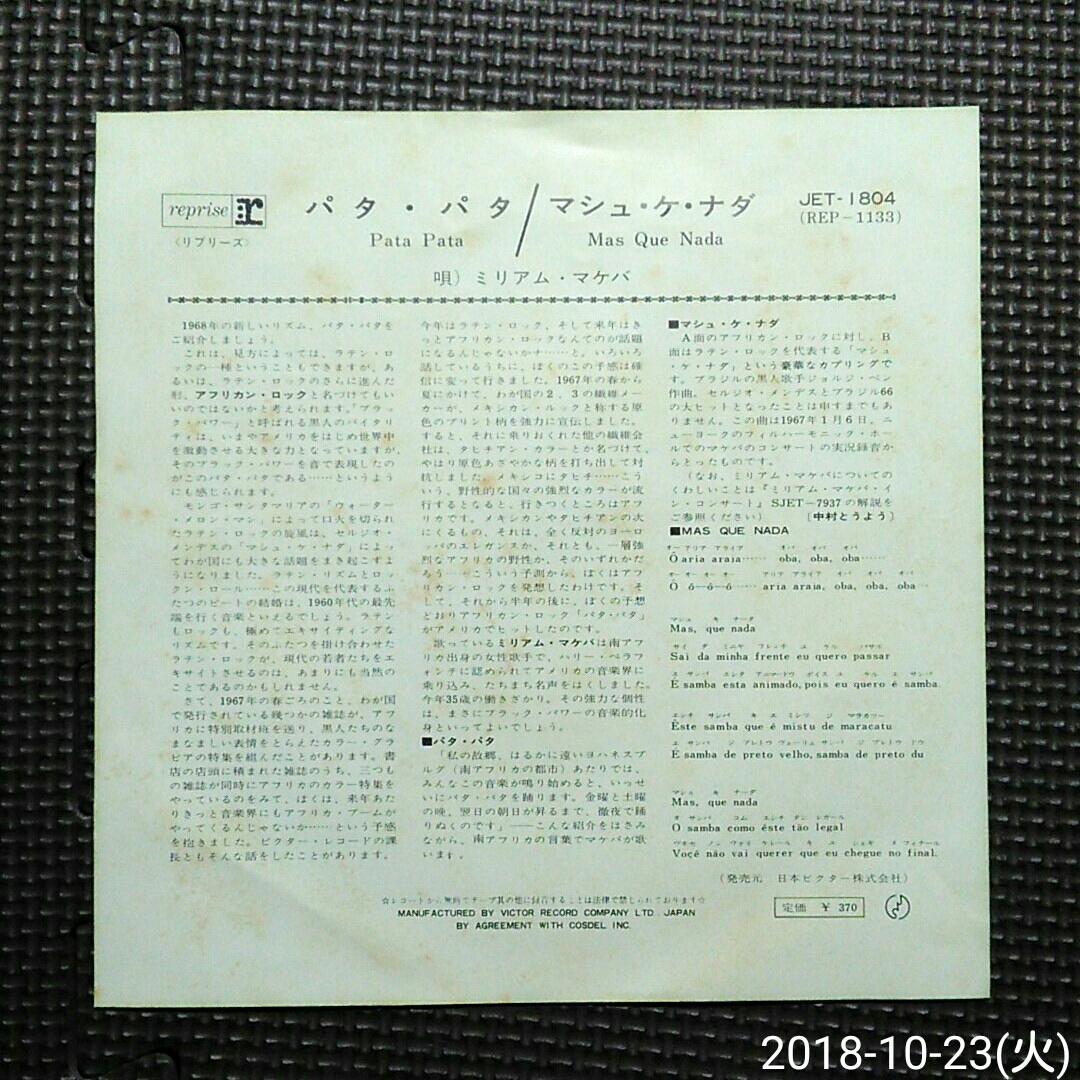 reprise r
〈リプリーズ〉
パタ・パタ/マシュ・ケ・ナダ
Pata Pata
Mas Que Nada
JET-1804
(REP-1133)
唄) ミリアム・マケバ
1968年の新しいリズム、パタ・パタを
ご紹介しましょう。
これは、見方によっては、ラテン・ロ
ックの一種ということもできますが、あ
るいは、ラテン・ロックのさらに進んだ
形、アフリカン・ロックと名づけてもい
いのではないかと考えられます。「ブラッ
ク・パワー」と呼ばれる黒人のバイタリ
ティは、いまやアメリカをはじめ世界中
を激動させる大きな力となっていますが、
そのブラック・パワーを音で表現したの
がこのパタ・パタである……というよう
にも感じられます。
モンゴ・サンタマリアの「ウォーター
・メロン・マン」によって口火を切られ
たラテン・ロックの旋風は、セルジオ・
メンデスの「マシュ・ケ・ナダ」によっ
てわが国にも大きな話題をまき起こすよ
うになりました。ラテン・リズムとロッ
クン・ロール……この現代を代表するふ
たつのビートの結婚は、1960年代の最先
端を行く音楽といえるでしょう。ラテン
もロックも、極めてエキサイティングな
リズムです。そのふたつを掛け合わせた
ラテン・ロックが、現代の若者たちをエ
キサイトさせるのは、あまりにも当然の
ことであるのかもしれません。
さて、1967年の春ごろのこと、わが国
で発行されている幾つかの雑誌が、アフ
リカに特別取材班を送り、黒人たちのな
まなましい表情をとらえたカラー・グラ
ビアの特集を組んだことがあります。書
店の店頭に積まれた雑誌のうち、三つも
の雑誌が同時にアフリカのカラー特集を
やっているのをみて、ぼくは、来年あた
りきっと音楽界にもアフリカ・ブームが
やってくるんじゃないか……という予感
を抱きました。ビクター・レコードの課
長ともそんな話をしたことがあります。
今年はラテン・ロック、そして来年はき
っとアフリカン・ロックなんてのが話題
になるんじゃないかナ……と。いろいろ
話しているうちに、ぼくのこの予感は確
信に変って行きました。1967年の春から
夏にかけて、わが国の2、3の繊維メー
カーが、メキシカン・ルックと称する原
色のプリント柄を強力に宣伝しました。
すると、それに乗りおくれた他の繊維会
社は、タヒチアン・カラーとか名づけて、
やはり原色あざやかな柄を打ち出して対
抗しました。メキシコにタヒチ……こう
いう、野性的な国々の強烈なカラーが流
行するとなると、行きつくところはアフ
リカです。メキシカンやタヒチアンの次
にくるもの、それは、全く反対のヨーロ
ッパのエレガンスか、それとも、一層強
烈なアフリカの野性か、そのいずれかだ
ろう……こういう予測から、ぼくはアフ
リカン・ロックを発想したわけです。そ
して、それから半年の後に、ぼくの予想
どおりアフリカン・ロック「パタ・パタ」
がアメリカでヒットしたのです。
歌っているミリアム・マケバは南アフ
リカ出身の女性歌手で、ハリー・ベラフ
ォンテに認められてアメリカの音楽界に
乗り込み、たちまち名声をはくしました。
今年35歳の働きざかり。その強力な個性
は、まさにブラック・パワーの音楽的化
身といってよいでしょう。
■パタ・パタ
「私の故郷、はるかに遠いヨハネスブ
ルグ(南アフリカの都市)あたりでは、
みんなこの音楽が鳴り始めると、いっせ
いにパタ・パタを踊ります。金曜と土曜
の晩、翌日の朝日が昇るまで、徹夜で踊
りぬくのです」――こんな紹介をはさみ
ながら、南アフリカの言葉でマケバが歌
います。
■マシュ・ケ・ナダ
A面のアフリカン・ロックに対し、B
面はラテン・ロックを代表する「マシュ
・ケ・ナダ」という豪華なカプリングで
す。ブラジルの黒人歌手ジョルジ・ベン
作曲。セルジオ・メンデスとブラジル66
の大ヒットとなったことは申すまでもあ
りません。この曲は1967年1月6日、ニ
ューヨークのフィルハーモニック・ホー
ルでのマケバのコンサートの実況録音か
らとったものです。
(なお、ミリアム・マケバについての
くわしいことは『ミリアム・マケバ・イ
ン・コンサート』SJET-7937の解説を
ご参照ください) 〔中村とうよう〕
■MAS QUE NADA
オー アリア アライア オバ オバ オバ
Ô aria araia…… oba, oba, oba……
オー オー オー オー アリア アライア オバ オバ オバ
Ô ô-ô-ô…… aria araia, oba, oba, oba…
マシュ キ ナーダ
Mas, que nada
サイ ダ ミニヤ フレンチ ユ ケル パサエ
Sai da minha frente eu quero passar
É samba esta animado, pois eu quero é samba.
Êste samba que é mistu de maracatu
É samba de preto velho, samba de preto du
マシュ キ ナーダ
Mas, que nada
オ サンバ コム エシチ タン レガール
O samba como êste tão legal
Você não vai querer que eu chegue no final.
(発売元 日本ビクター株式会社)
☆レコードから無断でテープ其の他に録音することは法律で禁じられております☆
MANUFACTURED BY VICTOR RECORD COMPANY LTD. JAPAN
BY AGREEMENT WITH COSDEL INC.
定価 ¥ 370
2018-10-23(火)